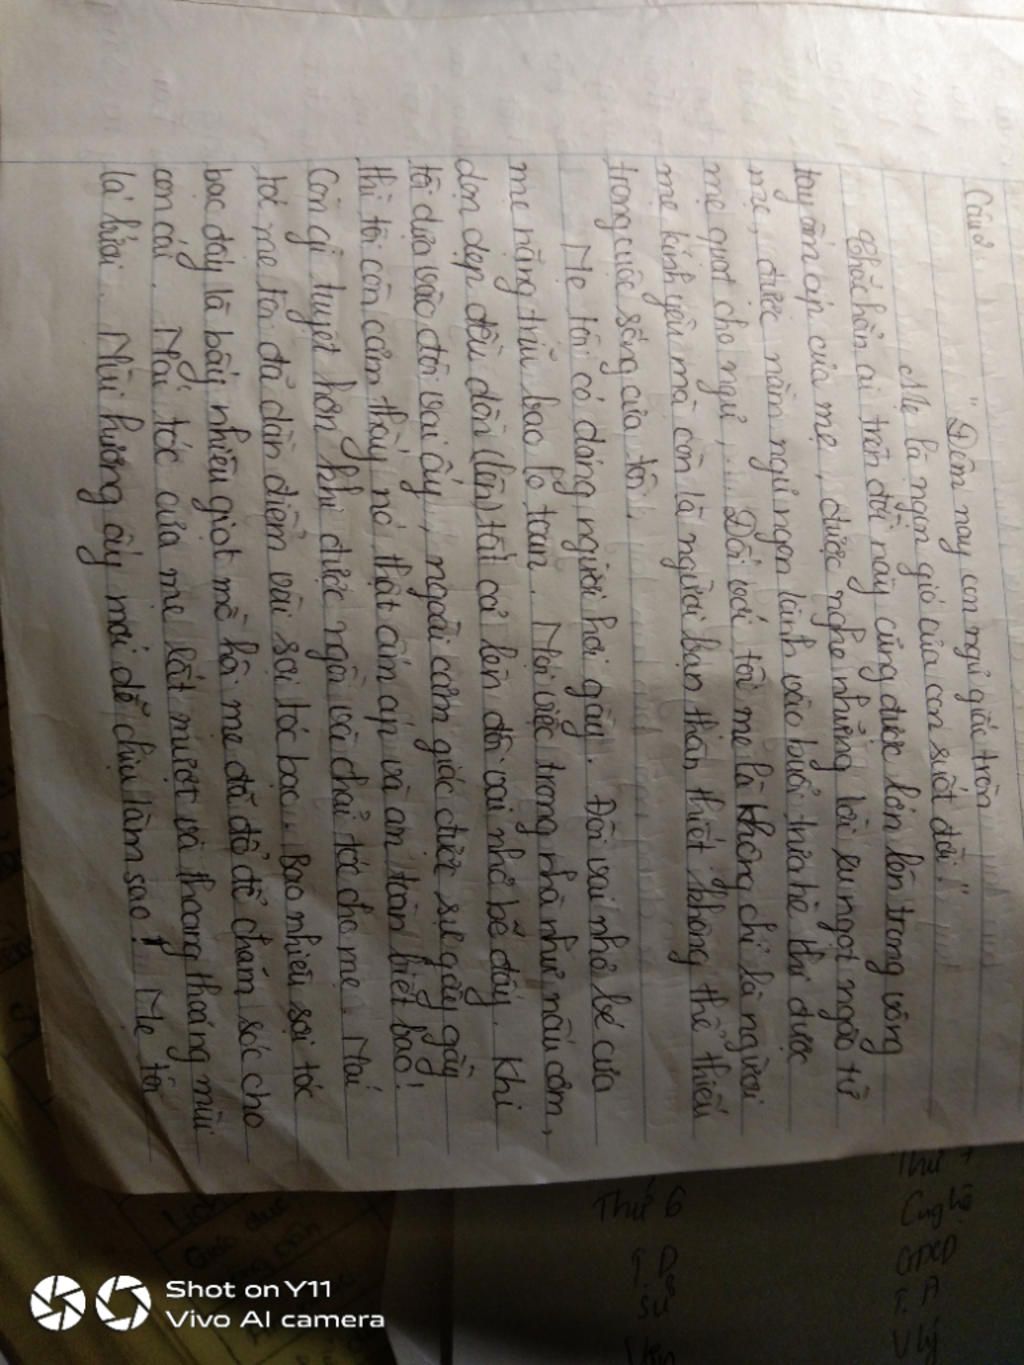 Câu 2.
"Đêm nay con ngủ giấc tròn
Mẹ là ngọn gió của con suốt đời."
Chắc hẳn ai trên đời này cũng được lớn lên trong vòng
tay ấm áp của mẹ, được nghe những lời ru ngọt ngào từ
mẹ, được nằm ngủ ngon lành vào buổi trưa hè khi được
mẹ quạt cho ngủ,... Đối với tôi mẹ là không chỉ là người
mẹ kính yêu mà còn là người bạn thân thiết không thể thiếu
trong cuộc sống của tôi.
Mẹ tôi có dáng người hơi gầy. Đôi vai nhỏ bé của
mẹ nặng trĩu bao lo toan. Mọi việc trong nhà như nấu cơm,
dọn dẹp đều dồn (lên) tất cả lên đôi vai nhỏ bé đấy. Khi
tôi dựa vào đôi vai ấy, ngoài cảm giác được sự gầy gầy
thì tôi còn cảm thấy nó thật ấm áp và an toàn biết bao!
Còn gì tuyệt hơn khi được ngồi và chải tóc cho mẹ. Mái
tóc mẹ tôi đã dần điểm vài sợi tóc bạc. Bao nhiêu sợi tóc
bạc đấy là bấy nhiêu giọt mồ hôi mẹ đã đổ để chăm sóc cho
con cái. Mái tóc của mẹ lất mượt và thoang thoáng mùi
lá bưởi. Mùi hương ấy mới dễ chịu làm sao! Mẹ tôi
Thứ 6
T.D
Sử
Văn
Thứ 7
Cnghệ
GDCD
T.A
V lý
Lịch
Giáo dục
công dân